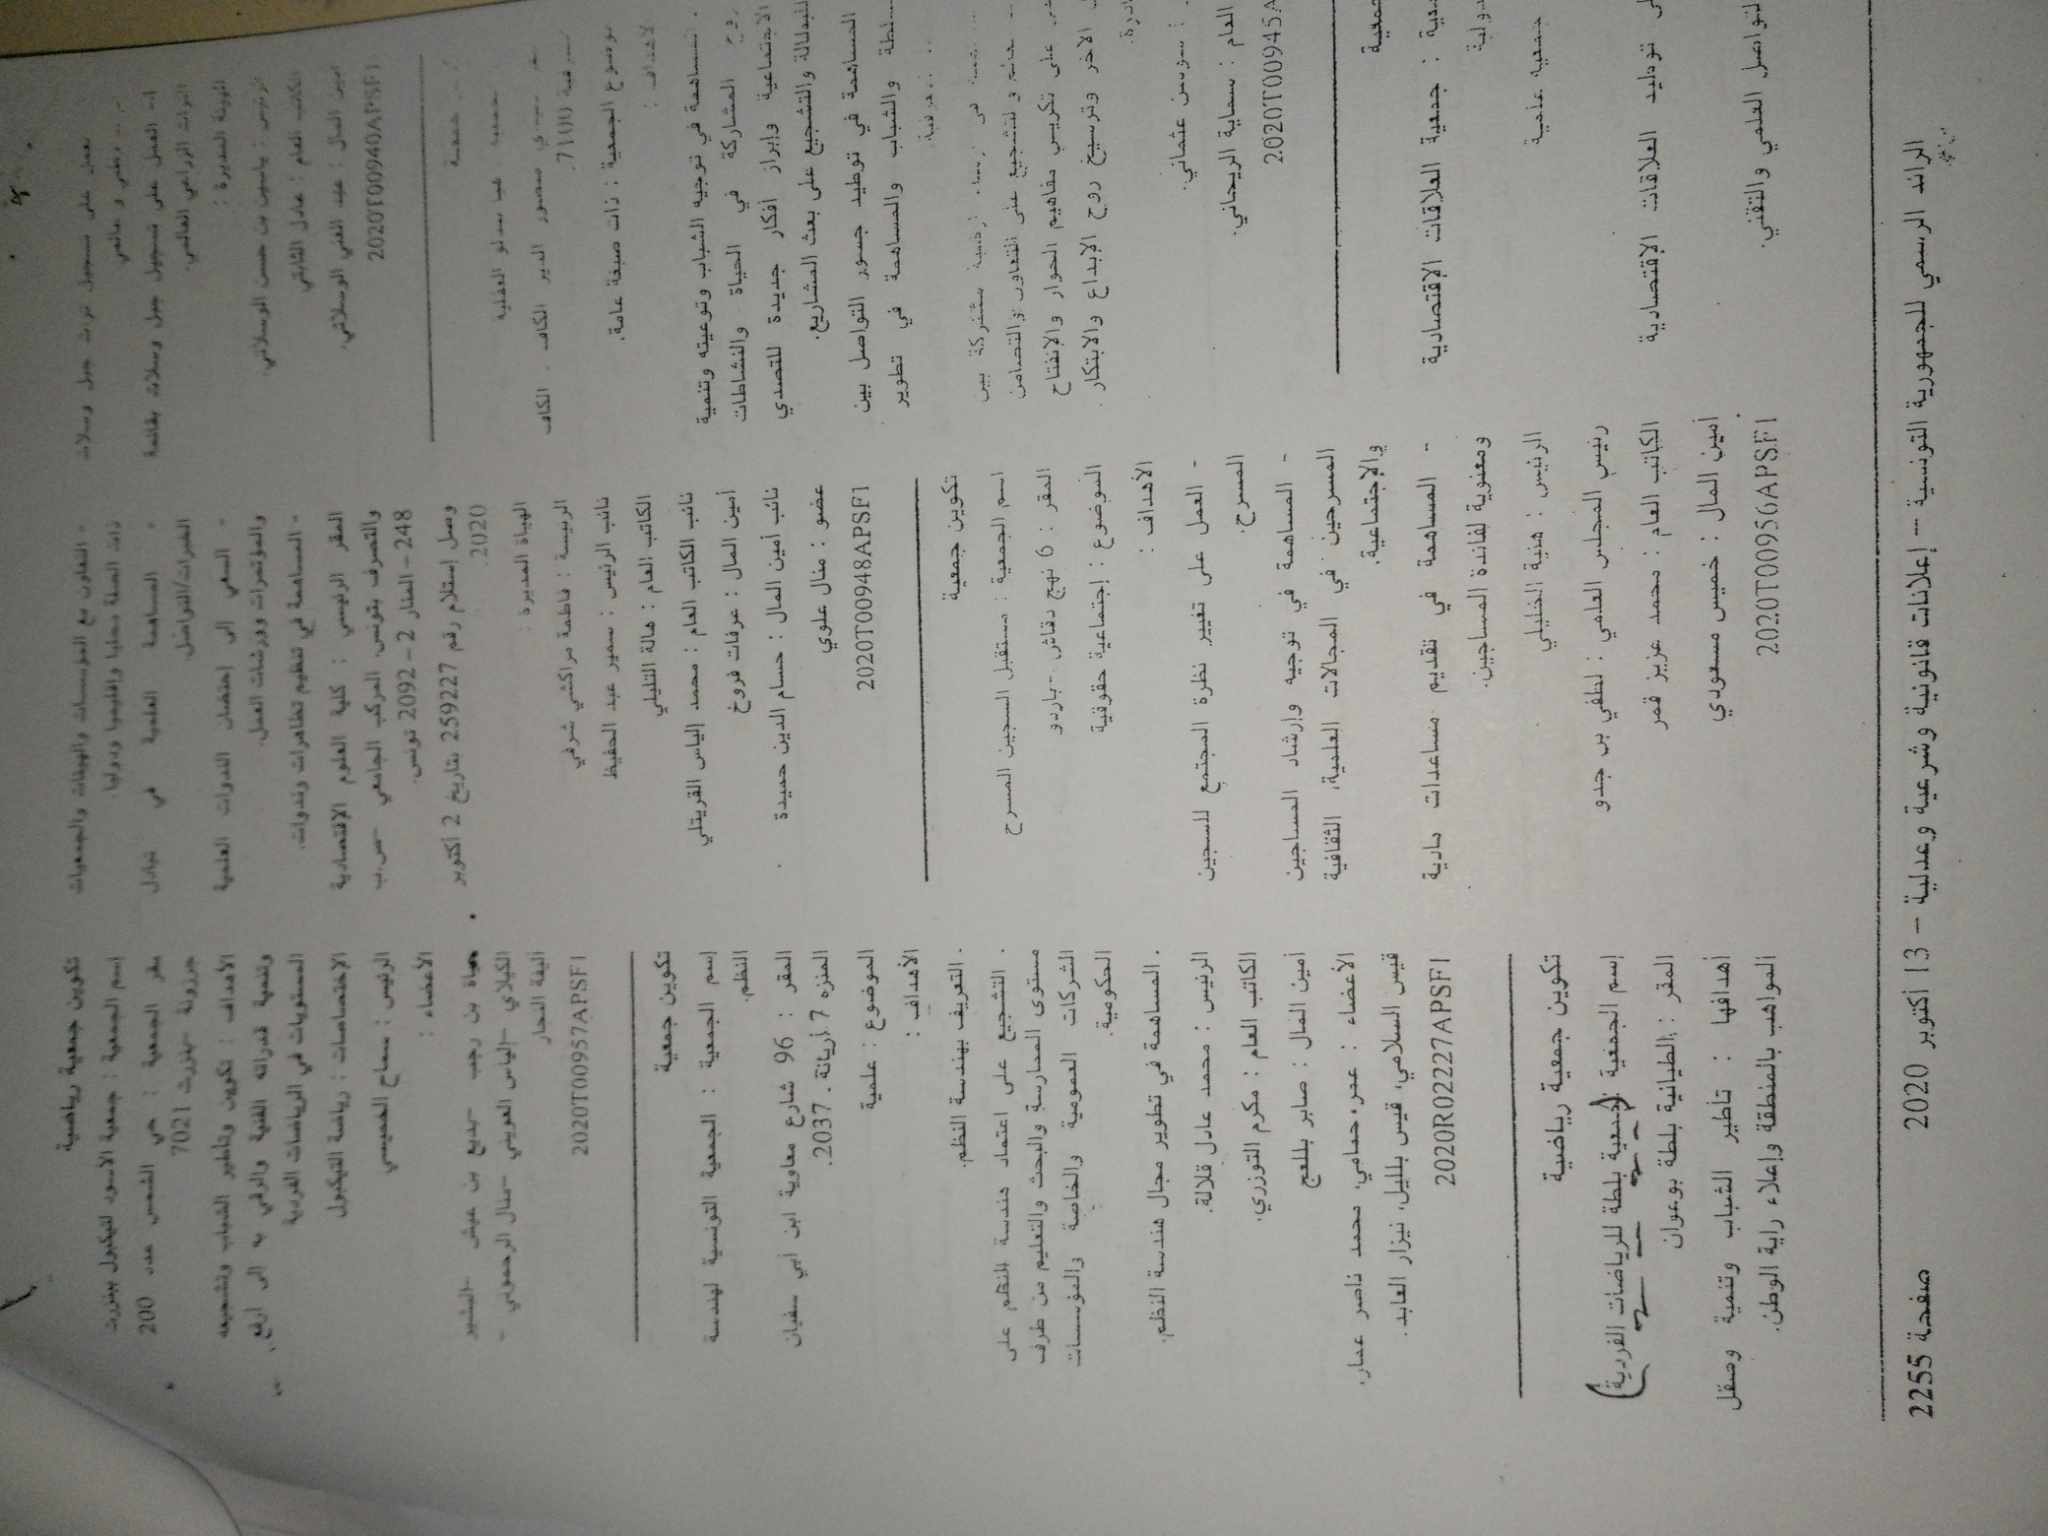 يعمل على تسجيل تراث جبل وسلات
وطني و عالمي
1- العمل على تسجيل جبل وسلات بقائمة
التراث الزراعي العالمي.
الهيئة المديرة :
الرئيس : ياسين بن حسن الوسلاتي.
الكاتب العام : عادل الثابتي
أمين المال : عبد الغني الوسلاتي.
2020T00940APSF1
سيدي منصور الدير الكاف . الكاف
7100.
موضوع الجمعية : ذات صبغة عامة.
الأهداف :
. المساهمة في توجيه الشباب وتوعيته وتنمية
روح المشاركة في الحياة والنشاطات
الاجتماعية وإبراز أفكار جديدة للتصدي
للبطالة والتشجيع على بعث المشاريع.
المساهمة في توطيد جسور التواصل بين
السلطة والشباب والمساهمة في تطوير
مشتركة بين
والتشجيع على التعاون والتضامن
على تكريس مفاهيم الحوار والإنفتاح
الآخر وترسيخ روح الإبداع والابتكار.
: سوسن عثماني.
العام : سماية الريحاني.
2020T00945A
جمعية
: جمعية العلاقات الإقتصادية
الدولية
جمعية علمية
توطيد العلاقات الإقتصادية
التواصل العلمي والتقني.
- التعاون مع المؤسسات والهيئات والجمعيات
ذات الصلة محليا وإقليميا ودوليا.
- المساهمة العلمية في تبادل
الخبرات/التواصل.
- السعي إلى إحتضان الندوات العلمية
والمؤتمرات وورشات العمل.
- المساهمة في تنظيم تظاهرات وندوات.
المقر الرئيسي : كلية العلوم الإقتصادية
والتصرف بتونس، المركب الجامعي -ص.ب
248- المنار 2 - 2092 تونس.
وصل إستلام رقم 259227 بتاريخ 2 أكتوبر
2020.
الهيأة المديرة :
الرئيسة : فاطمة مراكشي شرفي
نائب الرئيس : سمير عبد الحفيظ
الكاتب العام : هالة التليلي
نائب الكاتب العام : محمد إلياس القريتلي
أمين المال : عرفات فروخ
نائب أمين المال : حسام الدين حميدة
عضو : منال علوي
2020T00948APSF1
تكوين جمعية
اسم الجمعية : مستقبل السجين المسرح
المقر : 6 نهج دقاش -باردو
الموضوع : إجتماعية حقوقية
الأهداف :
- العمل على تغيير نظرة المجتمع للسجين
المسرح.
- المساهمة في توجيه وإرشاد المساجين
المسرحين في المجالات العلمية، الثقافية
والإجتماعية.
- المساهمة في تقديم مساعدات مادية
ومعنوية لفائدة المساجين.
الرئيس : هنية الخليلي
رئيس المجلس العلمي : لطفي بن جدو
الكاتب العام : محمد عزيز قمر
أمين المال : خميس مسعودي
2020T00956APSF1
تكوين جمعية رياضية
إسم الجمعية : جمعية الأسود للتيكبول ببنزرت
مقر الجمعية : حي الشمس عدد 200
جرزونة -بنزرت 7021
الأهداف : تكوين وتأطير الشباب وتشجيعه
وتنمية قدراته الفنية والرقي به إلى أرفع
المستويات في الرياضات الفردية
الإختصاصات : رياضة التيكبول
الرئيس : سماح الخميسي
الأعضاء :
حياة بن رجب -بديع بن عيش -البشير
الكيلاي -إلياس العويني -منال الرحموني -
أليفة النجار
2020T00957APSF1
تكوين جمعية
إسم الجمعية : الجمعية التونسية لهندسة
النظم.
المقر : 96 شارع معاوية ابن أبي سفيان
المنزه 7 أريانة . 2037.
الموضوع : علمية
الأهداف :
. التعريف بهندسة النظم.
. التشجيع على اعتماد هندسة النظم على
مستوى الممارسة والبحث والتعليم من طرف
الشركات العمومية والخاصة والمؤسسات
الحكومية.
. المساهمة في تطوير مجال هندسة النظم.
الرئيس : محمد عادل قلالة.
الكاتب العام : مكرم التوزري.
أمين المال : صابر بللعج
الأعضاء : عمر حمامي، محمد ناصر عمار،
قيس السلامي، قيس بلليل، نيزار العابد.
2020R02227APSF1
تكوين جمعية رياضية
إسم الجمعية : (جمعية بلطة للرياضات الفردية)
المقر : الطيانية بلطة بوعوان
أهدافها : تأطير الشباب وتنمية وصقل
المواهب بالمنطقة وإعلاء راية الوطن.
الرائد الرسمي للجمهورية التونسية – إعلانات قانونية وشرعية وعدلية – 13 أكتوبر 2020
صفحة 2255